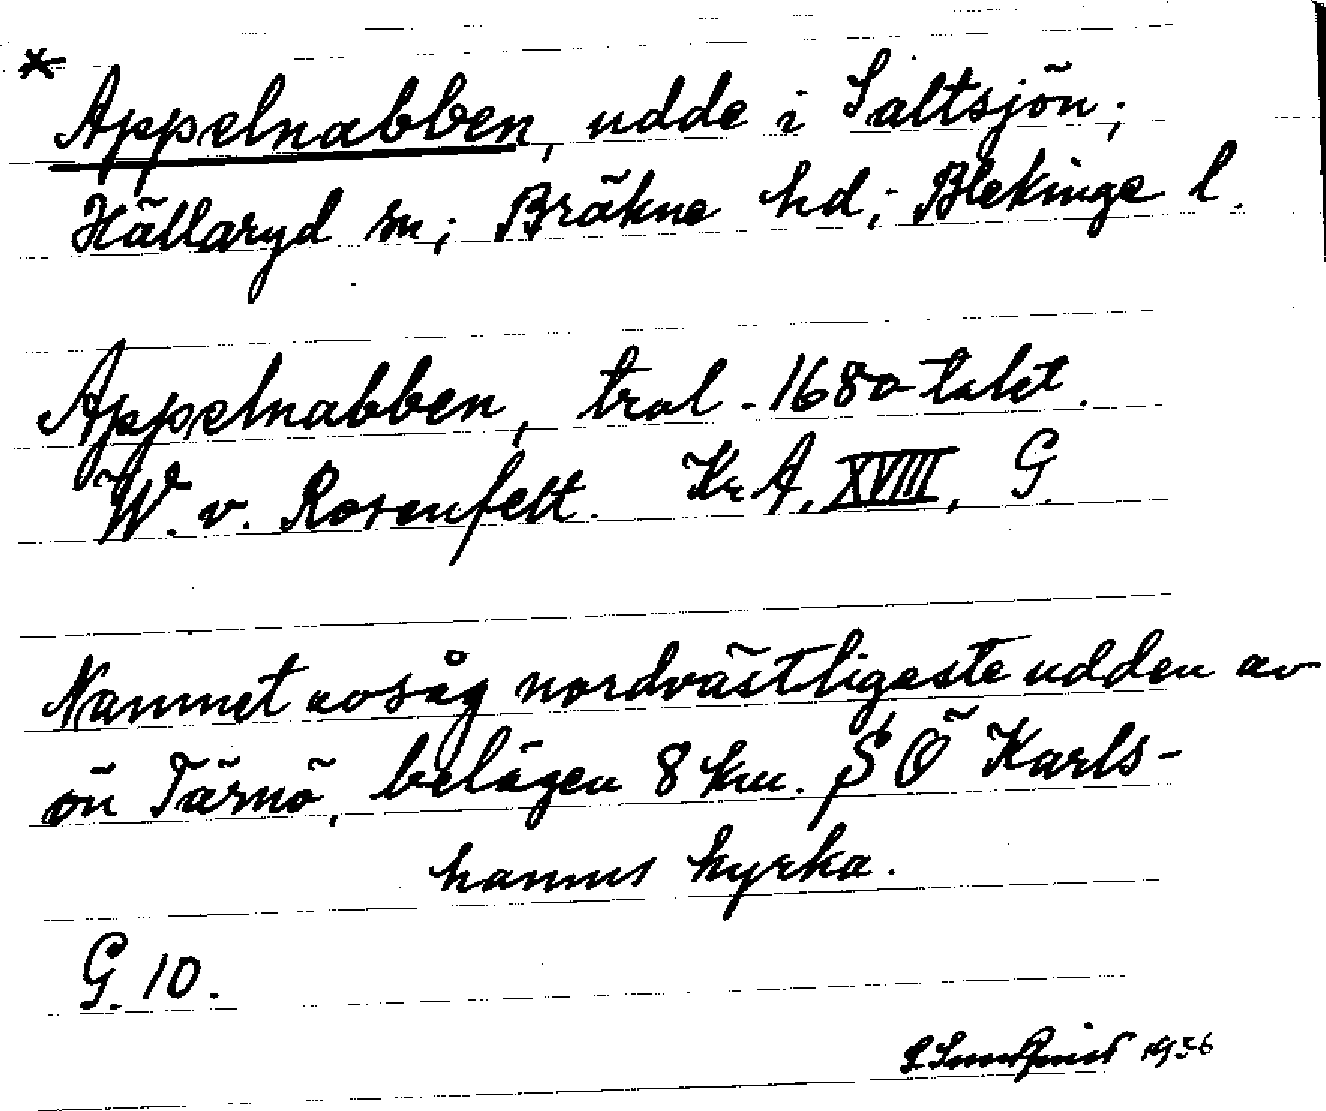 * Appelnabben, udde i Saltsjön;
Hällaryd sn; Bräkne hd; Blekinge l.
Appelnabben, trol. 1680-talet.
W. v. Rosenfelt. KrA, XVIII, G.
Namnet avsåg nordvästligaste udden av
ön Tärnö, belägen 8 km. S Ö Karls-
hamns kyrka.
G. 10.
1936